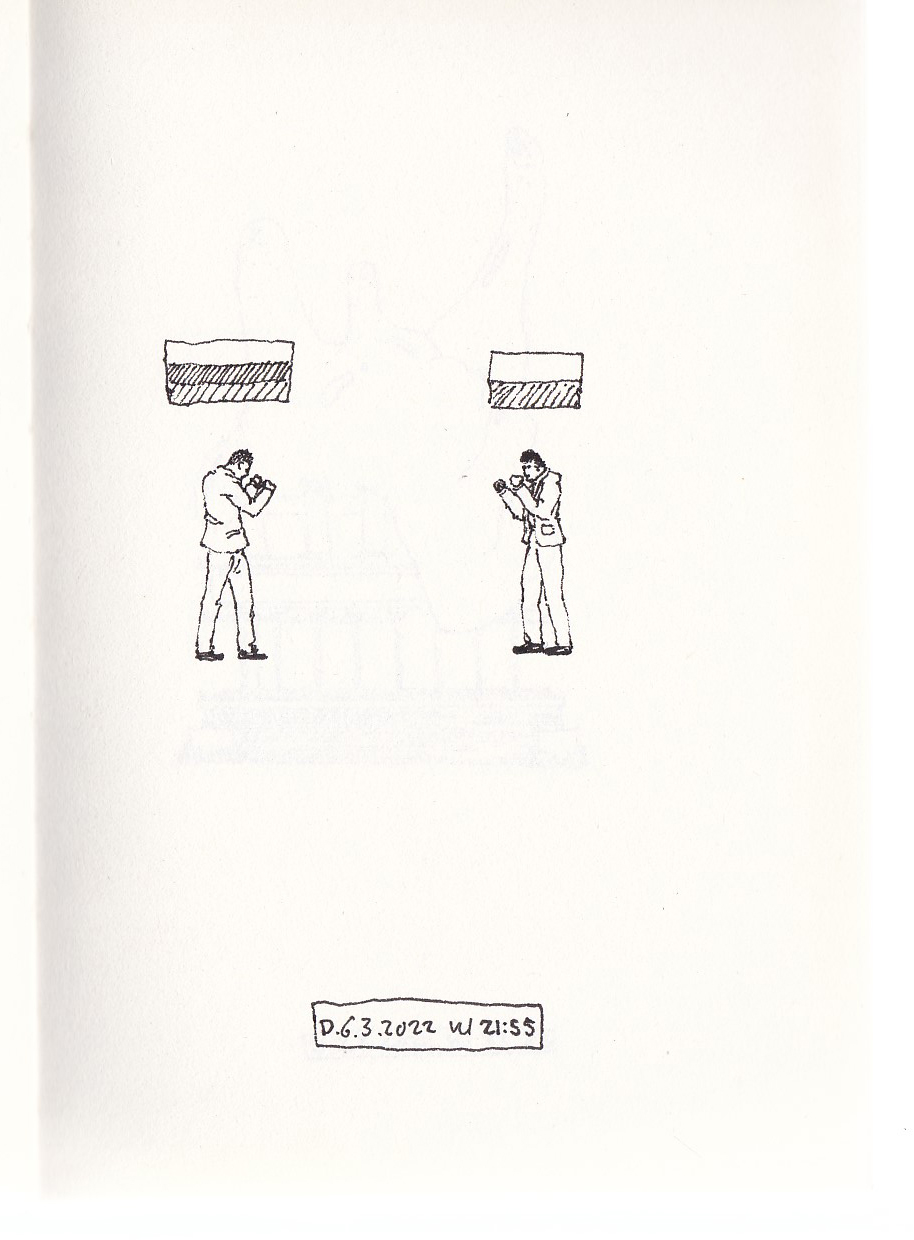 D.6.3.2022 kl 21:55